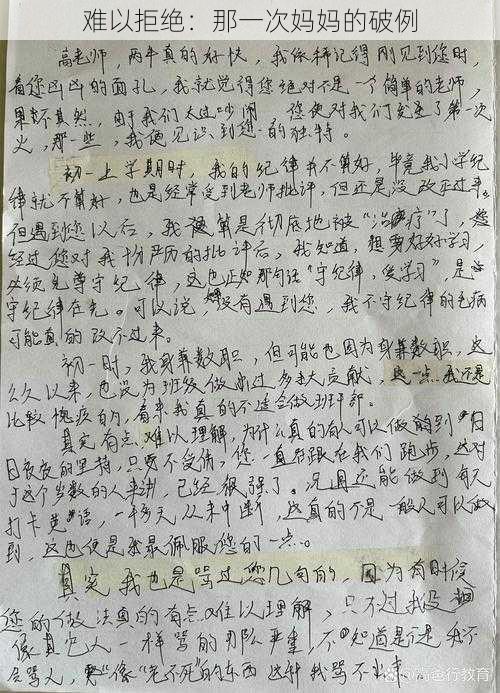 难以拒绝：那一次妈妈的破例
高老师，两年真的好快，我依稀记得刚见到您时，
看您凶凶的面孔，我就觉得您绝对不是一个简单的老师，
果不其然，由于我们太过吵闹 您便对我们发至了第一次
火，那一些，我便见识到您的独特。
初一上学期时，我的纪律并不算好，毕竟我小学纪
律就不算好，也是经常受到老师批评，但还是没改正过来。
但遇到您以后，我算是彻底地被“治疗”了，
经过您对我十分严厉的批评后，我知道，想要好好学习，
必须先遵守纪律，这也正如那句话“守纪律，爱学习”，是
守纪律在先。可以说，没有遇到您，我不守纪律的毛病
可能真的改不过来。
初一时，我身兼数职，但可能也因为身兼数职，这
么久以来，也没为班级做出过多大贡献，这一点我还是
比较愧疚的，看来我真的不适合做班干部。
其实有点难以理解，为什么真的有人可以做到日
日夜夜的坚持，只要不受伤，您一直在跟在我们跑步，这对
于这个岁数的人来讲，已经很强了。况且还能做到每天
打卡英语，一年多天从未中断，这真的不是一般人可以做
到，这也便是我最佩服您的一点。
其实我也是骂过您几句的，因为有时侯
您的做法真的有点难以理解，只不过我没
像其它人一样骂的那么严重，不知道是不是我不
会骂人，像“老不死”的东西这种我骂不出来
尚行教育